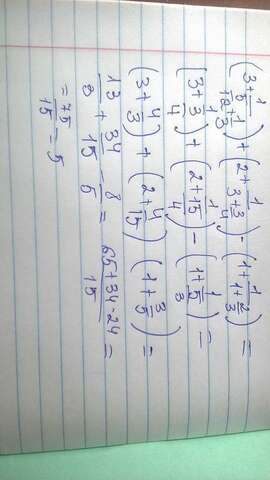 (3+1/(5/12+1/3)) + (2+1/(3+3/4)) - (1+1/(1+2/3)) =
[3+1/(3/4)] + (2+1/(15/4)) - (1+1/(5/3)) =
(3+4/3) + (2+4/15) (1+3/5) =
13/3 + 34/15 - 8/5 = (65+34-24)/15 =
= 75/15 = 5